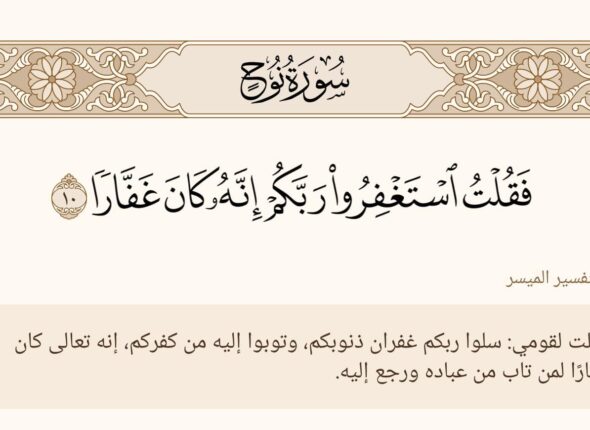 سُورَةُ نُوحٍ
فَقُلْتُ ٱسْتَغْفِرُوا۟ رَبَّكُمْ إِنَّهُۥ كَانَ غَفَّارًا ١٠
تفسير الميسر
لت لقومي: سلوا ربكم غفران ذنوبكم، وتوبوا إليه من كفركم، إنه تعالى كان
ارًا لمن تاب من عباده ورجع إليه.